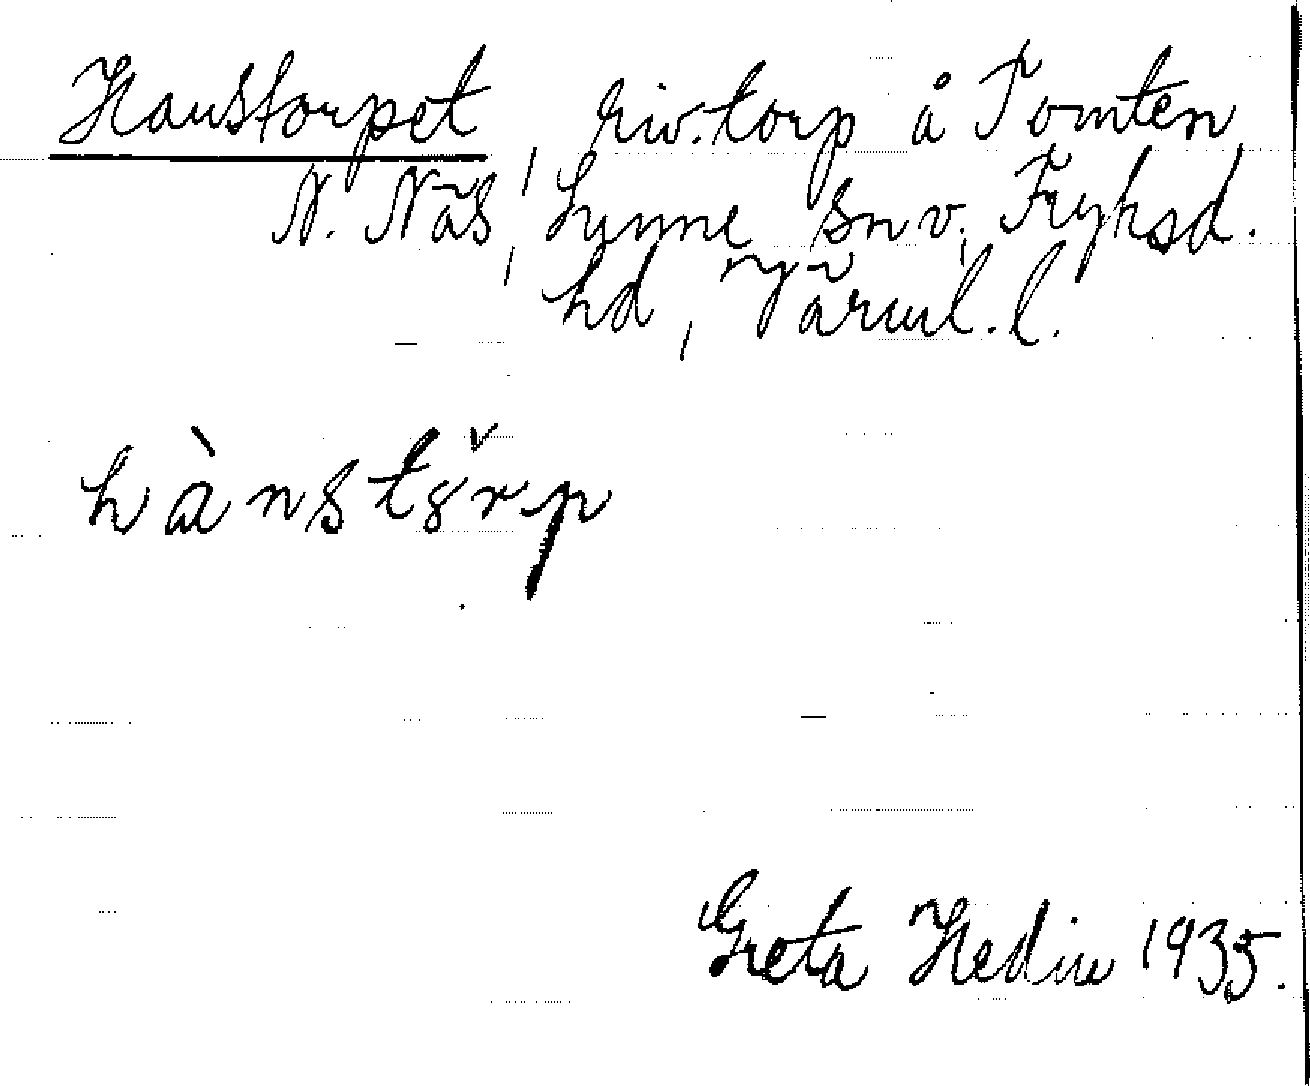 Hanstorpet, riv. torp å Tomten
N. Näs, Lysvik sn, Fryksd.
hd, Värml. l.
hànstŏrp
Greta Hedin 1935.